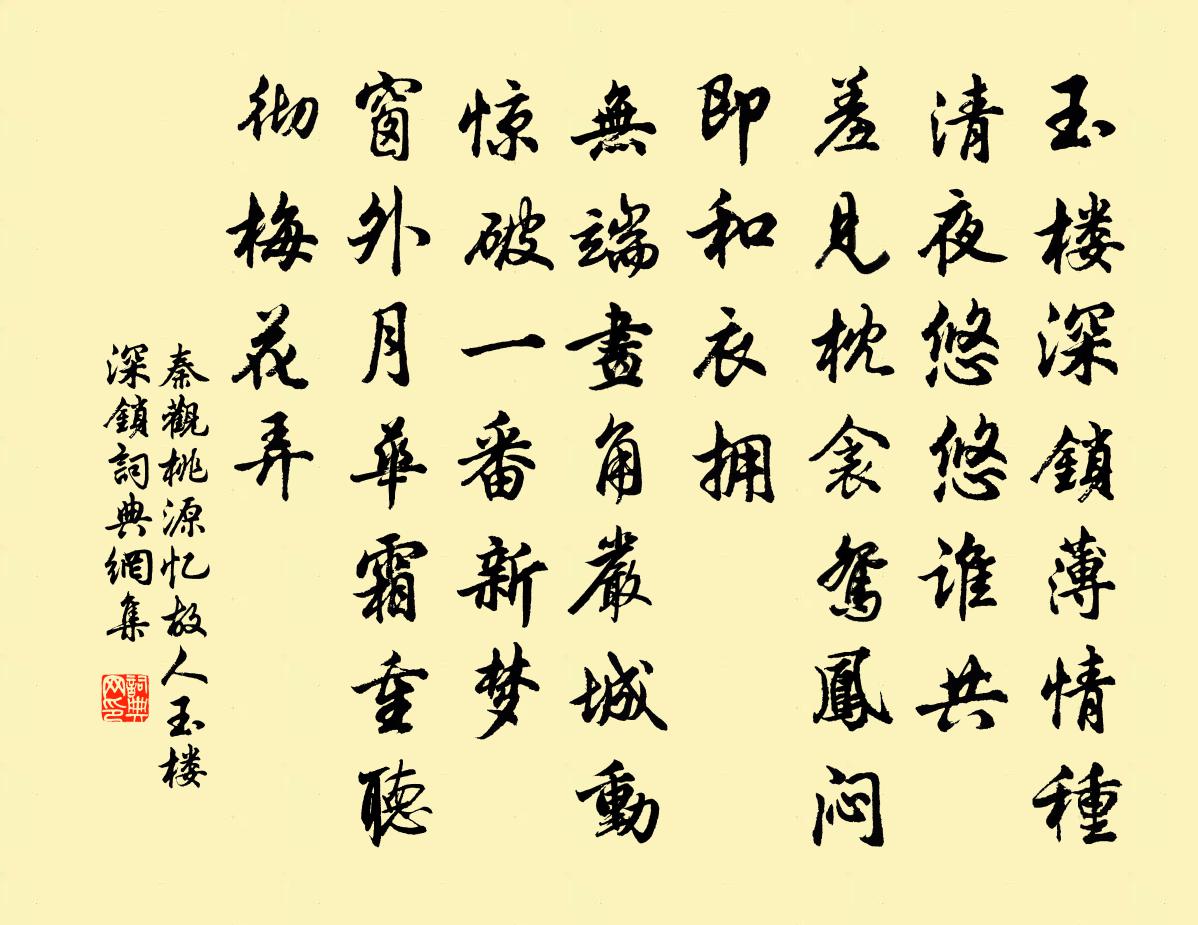 玉楼深鎖薄情種
清夜悠悠誰共
羞見枕衾鴛鳳悶
即和衣拥
無端畫角嚴城動
惊破一番新梦
窗外月華霜重聽
彻梅花弄
秦觀桃源忆故人玉楼
深鎖詞典網集
詞典
网印